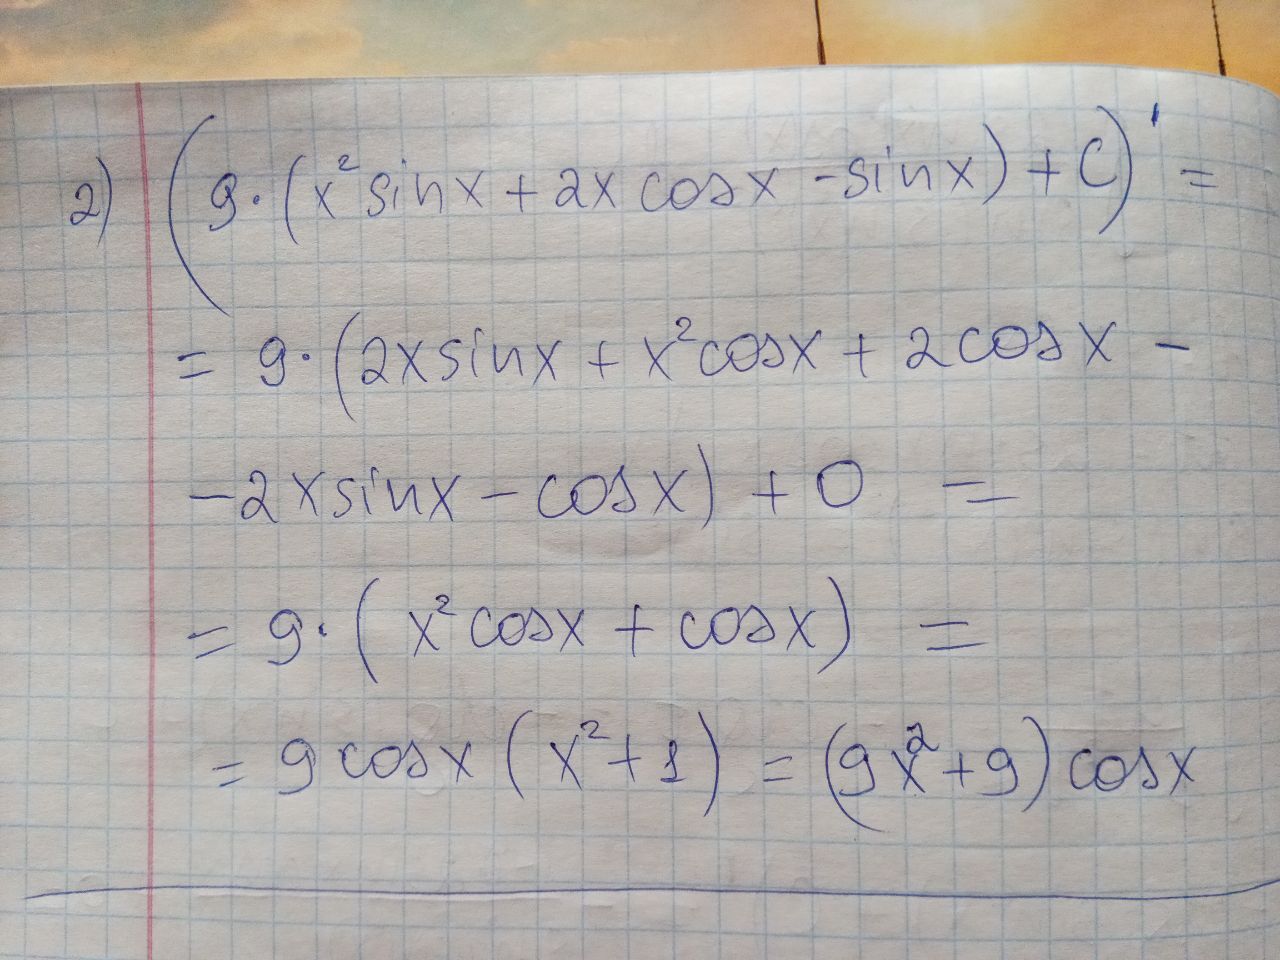 2) (9·(x²sinx + 2x cosx - sinx) + C)' =
= 9·(2x sinx + x²cosx + 2cosx -
- 2x sinx - cosx) + 0 =
= 9·(x²cosx + cosx) =
= 9 cosx (x² + 1) = (9x² + 9) cosx